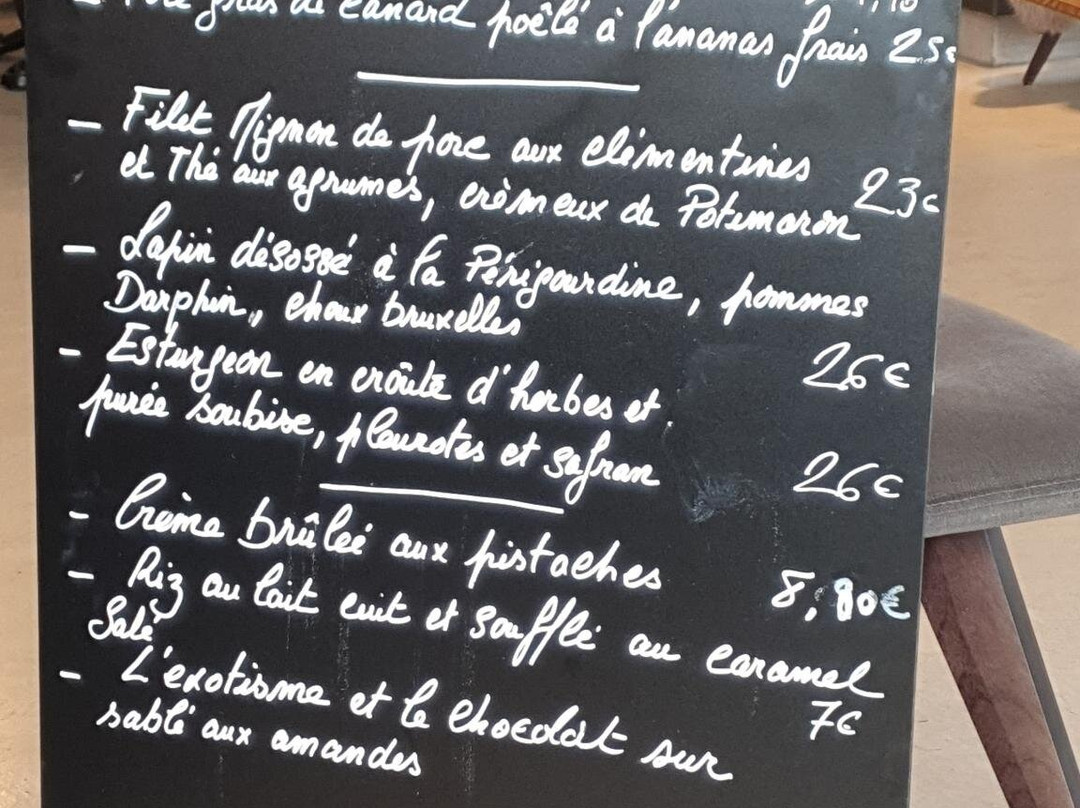 gras de canard poêlé à l'ananas frais 25€
- Filet Mignon de porc aux clémentines
et Thé aux agrumes, crèmeux de Potimaron 23€
- Lapin désossé à la Périgourdine, pommes
Darphin, choux bruxelles
26€
- Esturgeon en croûte d'herbes et
purée soubise, pleurotes et safran
26€
- Crème brûlée aux pistaches 8,80€
- Riz au lait cuit et soufflé au caramel
Salé 7€
- L'exotisme et le chocolat sur
sablé aux amandes